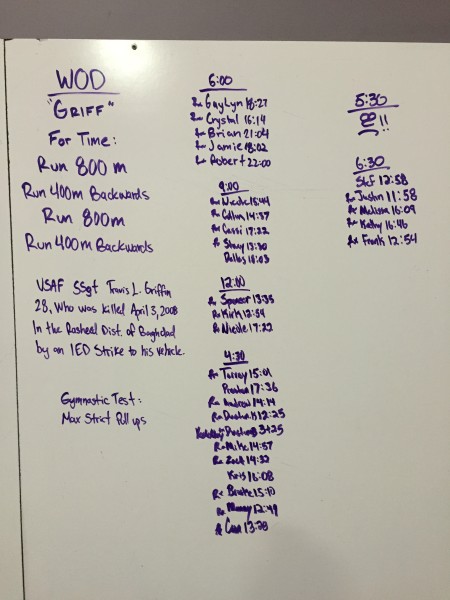 WOD
"GRIFF"
For Time:
Run 800 m
Run 400m Backwards
Run 800m
Run 400m Backwards
USAF SSgt Travis L. Griffin
28, Who was killed April 3, 2008
In the Rasheed Dist. of Baghdad
by an IED Strike to his vehicle.
Gymnastic Test:
Max Strict Pull ups
6:00
Rx GayLyn 18:27
Rx Crystal 16:14
Rx Brian 21:04
Rx Jamie 18:02
Rx Robert 22:00
9:00
Rx Nicole 15:44
Rx 14:57
Rx Cassi 17:22
Rx Stacy 13:30
Dallas 16:03
12:00
Rx Spencer 13:35
Rx Kirk 12:54
Rx Nicole 17:22
4:30
Rx Torrey 15:01
Preston 17:36
Rx Andrew 14:14
Rx 12:25
34:25
Rx Mike 14:57
Rx Zack 14:32
Kris 16:08
Rx Brooke 15:10
Rx 12:49
Rx 13:28
5:30
!!
6:30
Stef 12:58
Rx Justin 11:58
Rx Melissa 16:09
Rx Kathy 16:46
Rx Frank 12:54